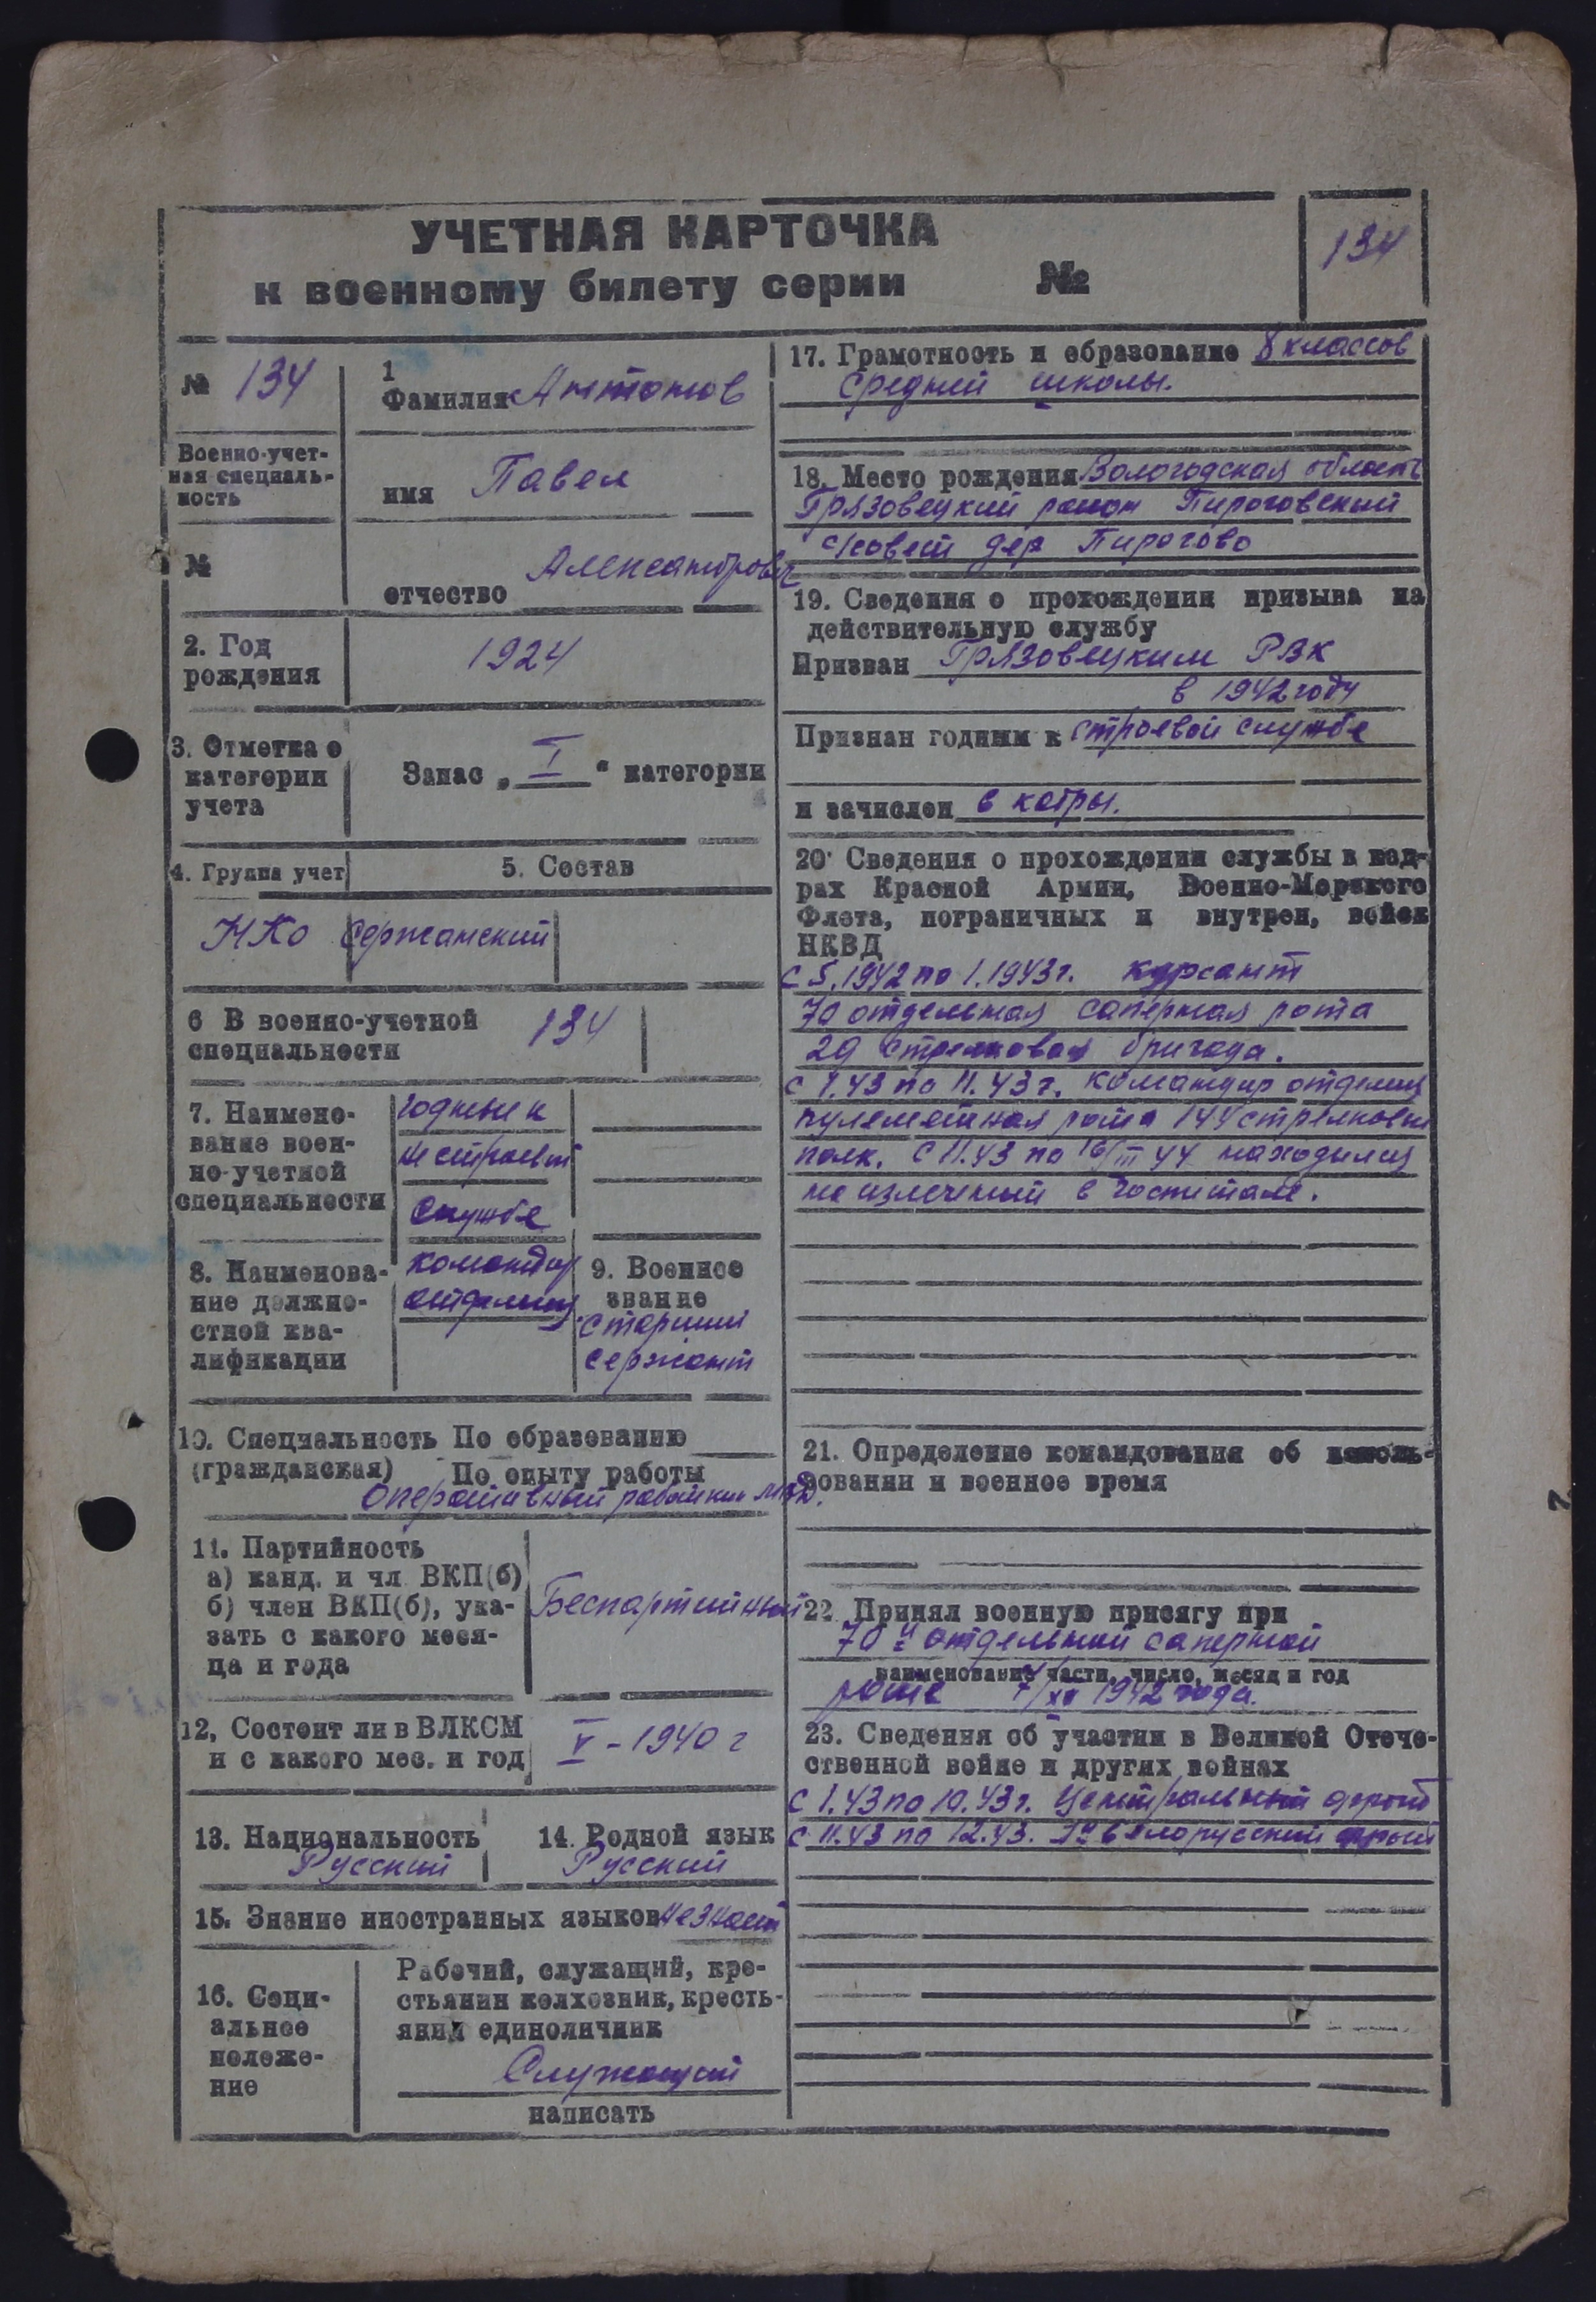 УЧЕТНАЯ КАРТОЧКА
к военному билету серии №
134
№ 134
1
Фамилия Антонов
Военно-учет-
ная специаль-
ность
имя Павел
№
отчество Александрович
2. Год
рождения
1924
3. Отметка о
категории
учета
Запас „ I “ категории
4. Группа учет
5. Состав
НКО
Сержанский
6 В военно-учетной
специальности
134
7. Наимено-
вание воен-
но-учетной
специальности
годный к
нестроевой
службе
8. Наименова-
ние должно-
стной ква-
лификации
командир
отделения
9. Военное
звание
старший
сержант
10. Специальность По образованию
(гражданская) По опыту работы
Оперативный работник МВД.
11. Партийность
а) канд. и чл ВКП(б)
б) член ВКП(б), ука-
зать с какого меся-
ца и года
Беспартийный
12, Состоит ли в ВЛКСМ
и с какого мес. и год
V - 1940 г
13. Национальность
Русский
14. Родной язык
Русский
15. Знание иностранных языков не знает
16. Соци-
альное
положе-
ние
Рабочий, служащий, кре-
стьянин колхозник, кресть-
янин единоличник
Служащий
написать
17. Грамотность и образование 8 классов
средней школы.
18. Место рождения Вологодская область
Грязовецкий район Пироговский
с/совет дер Пирогово
19. Сведения о прохождении призыва на
действительную службу
Призван Грязовецким РВК
в 1942 году
Признан годным к строевой службе
и зачислен в кадры.
20. Сведения о прохождении службы в кад-
рах Красной Армии, Военно-Морского
Флота, пограничных и внутрен, войск
НКВД
с 5.1942 по 1.1943 г. курсант
70 отдельная саперная рота
29 стрелковая бригада.
с 1.43 по 11.43 г. командир отделения
пулеметная рота 144 стрелковый
полк. С 11.43 по 16/III 44 находился
на излечении в госпитале.
21. Определение командования об исполь-
зовании и военное время
22 Принял военную присягу при
70й отдельной саперной
наименование части, число, месяц и год
роте 7/XI 1942 года.
23. Сведения об участии в Великой Отече-
ственной войне и других войнах
с 1.43 по 10.43 г. Центральный фронт
с 11.43 по 12.43. 1й белорусский фронт